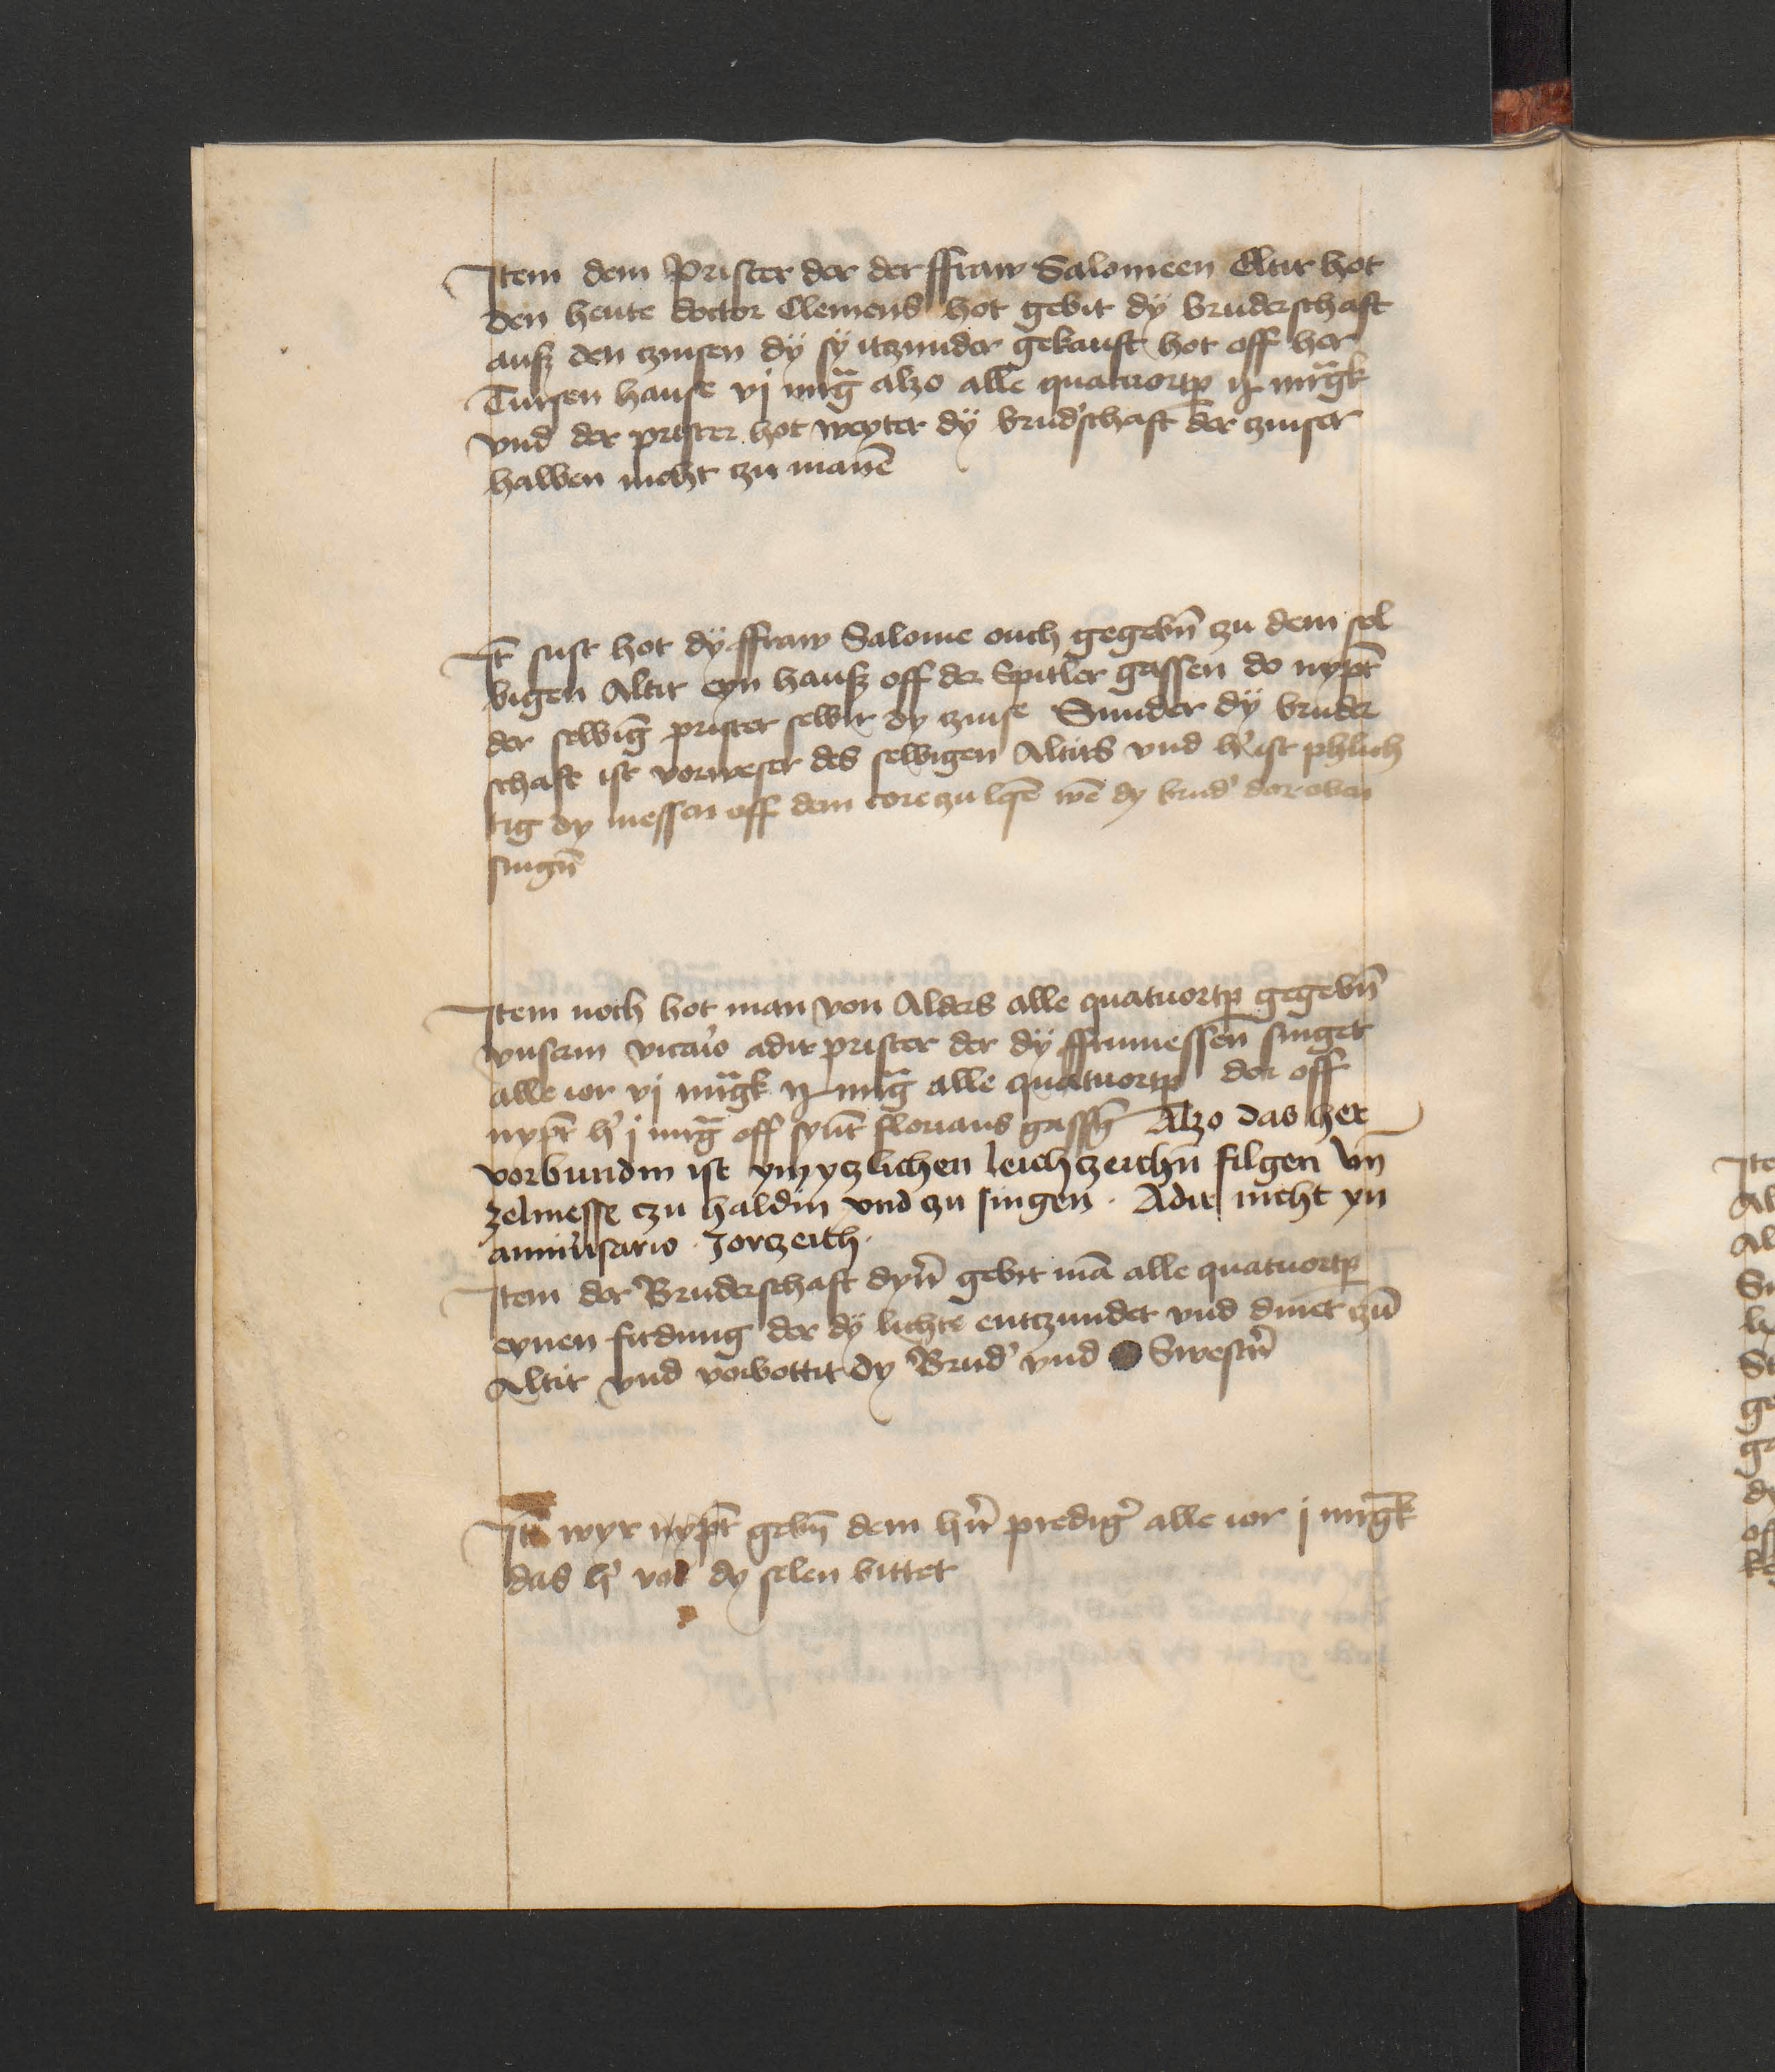 Item dem Prister der der ffraw Salomeen Altir hot
den heute doctor Clemens hot gebit dÿ bruderschaft
aufz den czinsen dÿ sÿ itzunder gekauft hot off her
Tursen hause vj mrg̃ alzo alle quatuortp̲ ij mrgk̃
vnd der prister hot weyter dÿ brud'schaft der czinser
halben nicht czu manẽ
It̃ sust hot dÿ ffraw Salome ouch gegebñ czu dem sel
bigen Altir eyn haufz off der Spitler gassen do nypt̃
der selbig̃ prister selbir dy czinse Sunder dÿ bruder
schaft ist vorweser des selbigen Altirs vnd h' ist phlich
tig dy messen off dem core zu lesẽ wẽ dy brud' dor oben
singñ
Item noch hot man von Alders alle quatuortp̲ gegebñ
vnserm vicario adir prister der dÿ ffrumessen singet
alle ior vj mrgk̃ ij mrg̃ alle quatuortp̲ dor off
nypt̃ h' j mrg̃ off synt̃ florians gassñ Alzo das her
vorbundin ist ym yczlichen leichczeichñ filgen vñ
zelmesse czu haldin vnd zu singen . Adir nicht yn
anniu'sario . Jorczeith .
Item der Bruderschaft dyn̄' gebit mã alle quatuortp̲
eynen firdung der dÿ lichte entczundet vnd dinet czũ
Altir vnd vorbottit dy Brud' vnd Swestrñ
Itẽ wyr gebñ dem hrñ predig' alle ior j mrgk̃
das h' vor dy selen bittet
Ite
Al
Al
St
ge
dy
off